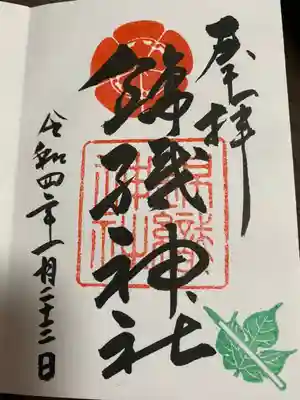 奉拝
錦織神社
錦織
神社
令和四年一月二十三日